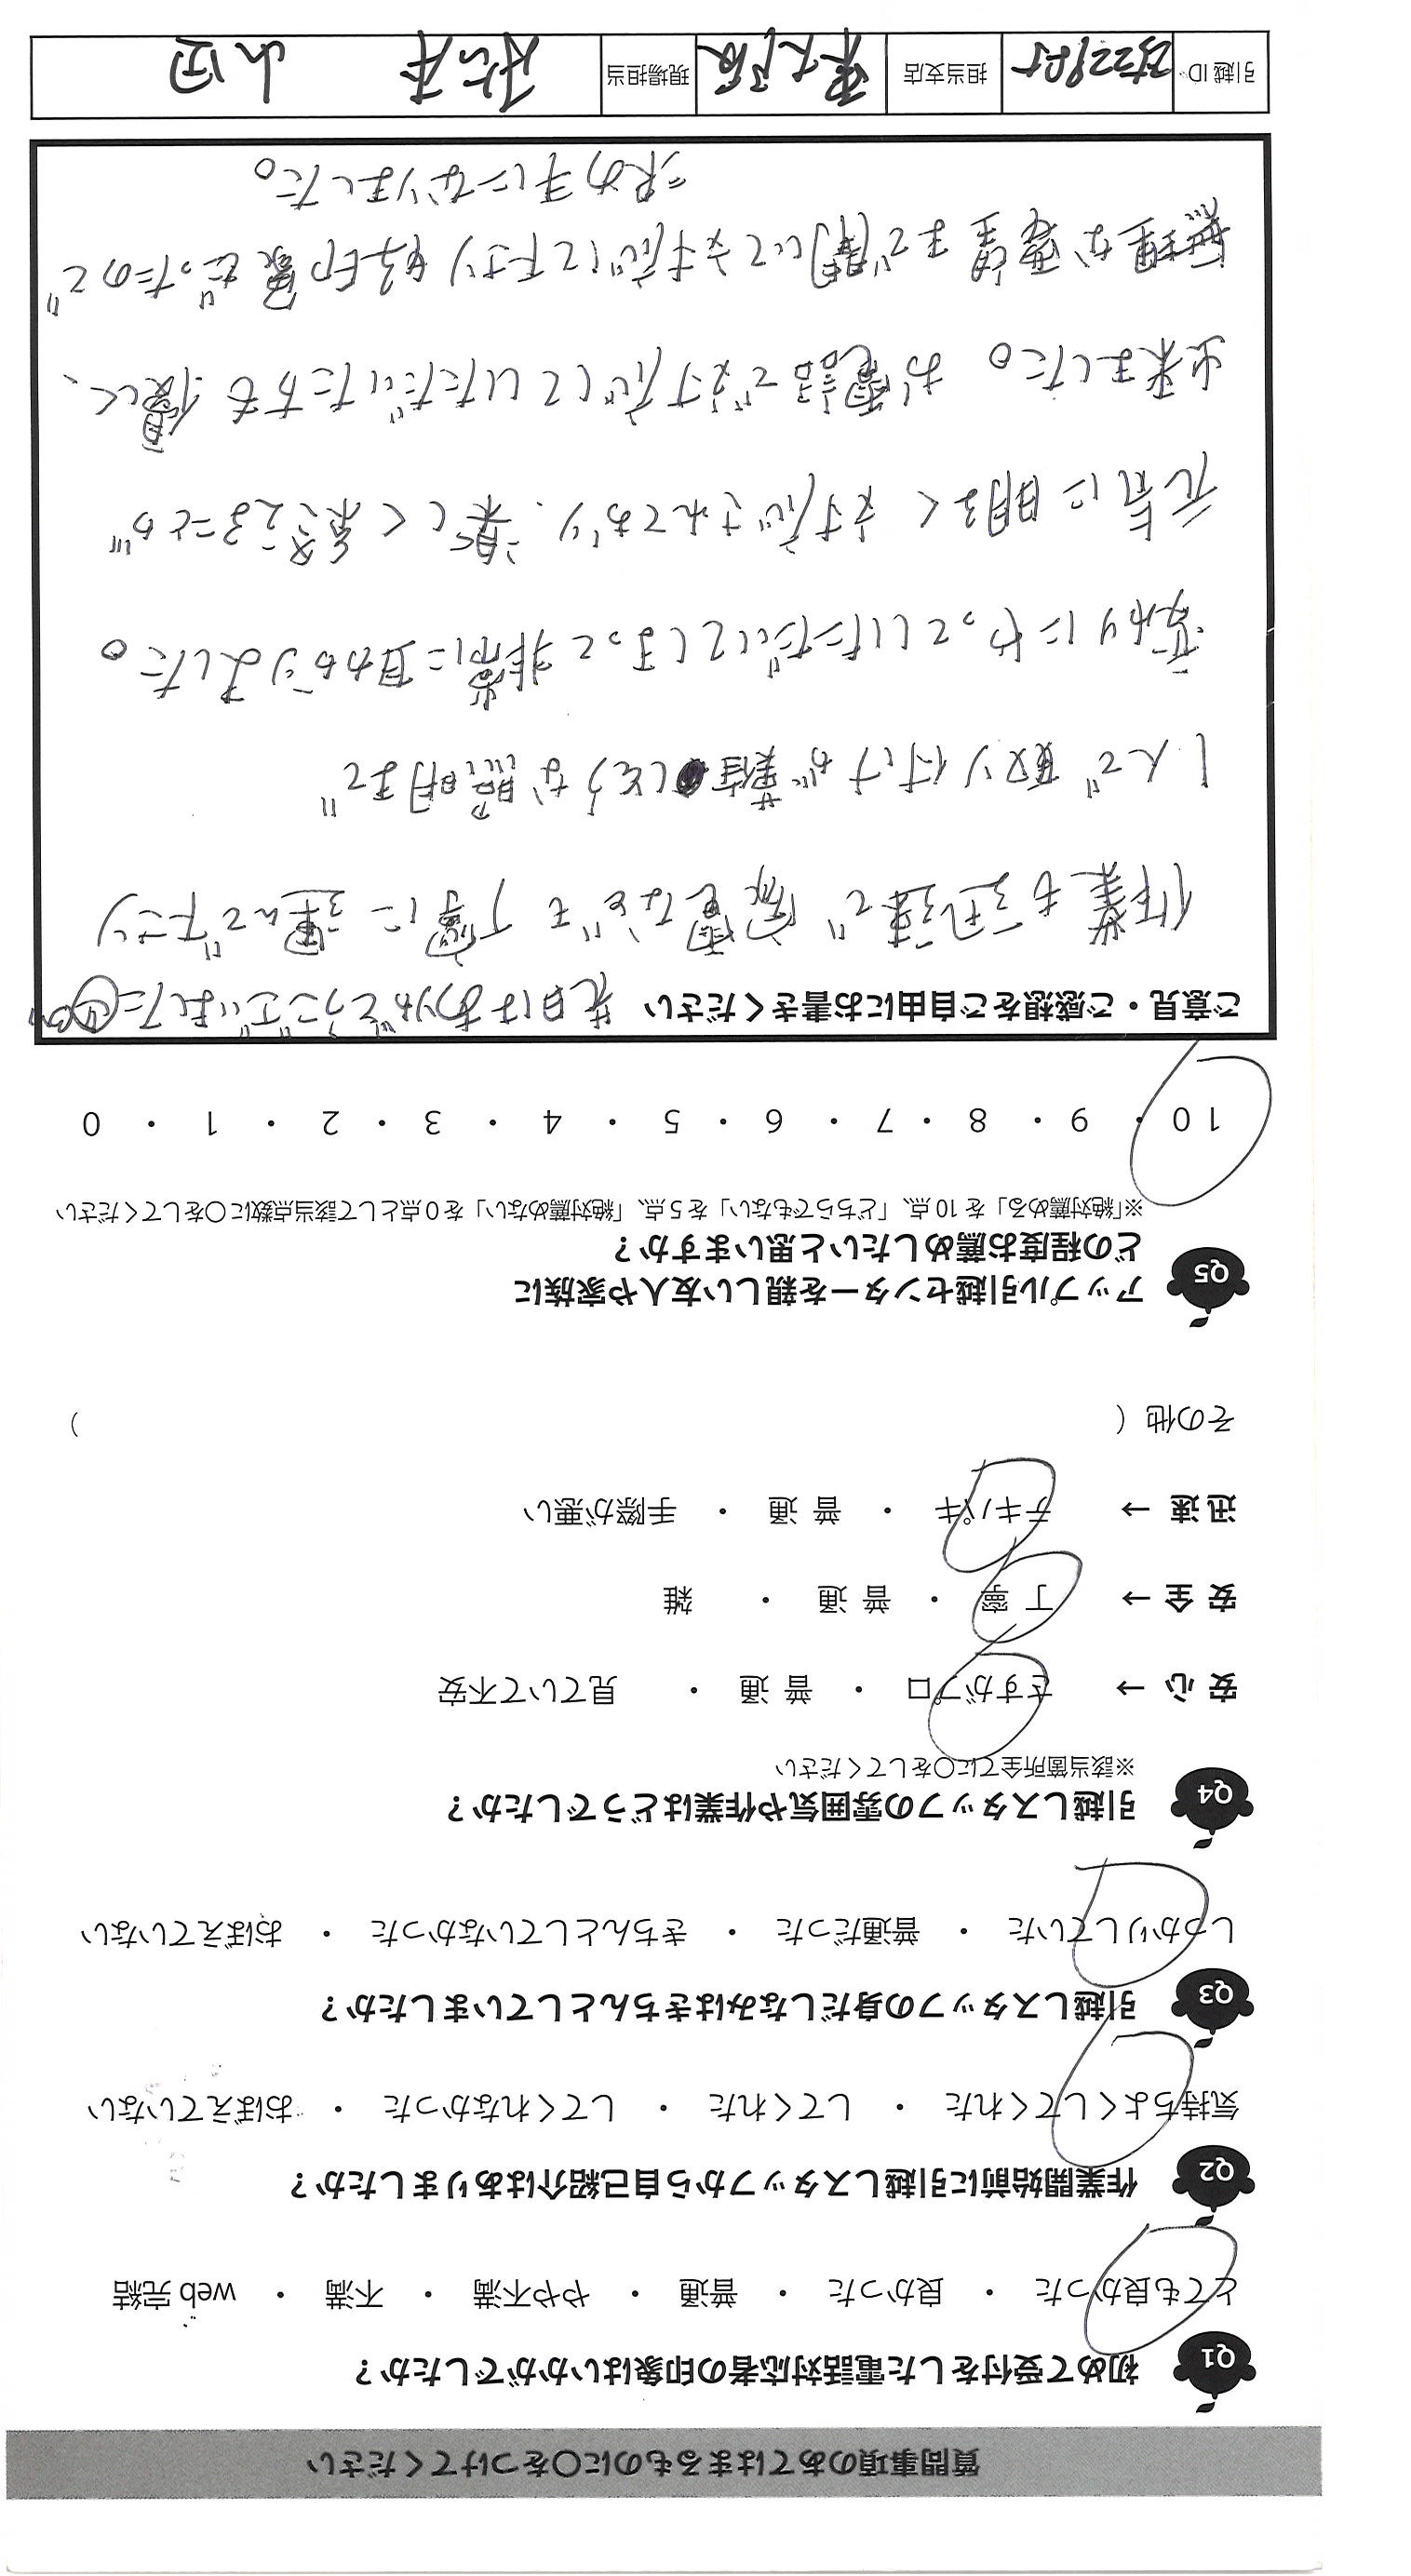 質問事項のあてはまるものに○をつけてください
Q1 初めて受付をした電話対応者の印象はいかがでしたか？
とても良かった ・ 良かった ・ 普通 ・ やや不満 ・ 不満 ・ web 完結
Q2 作業開始前に引越しスタッフから自己紹介はありましたか？
気持ちよくしてくれた ・ してくれた ・ してくれなかった ・ おぼえていない
Q3 引越しスタッフの身だしなみはきちんとしていましたか？
しっかりしていた ・ 普通だった ・ きちんとしていなかった ・ おぼえていない
Q4 引越しスタッフの雰囲気や作業はどうでしたか？
※該当箇所全てに○をしてください
安 心 → さすがプロ ・ 普 通 ・ 見ていて不安
安 全 → 丁 寧 ・ 普 通 ・ 雑
迅 速 → テキパキ ・ 普 通 ・ 手際が悪い
その他（ ）
Q5 アップル引越センターを親しい友人や家族に
どの程度お薦めしたいと思いますか？
※「絶対薦める」を 10 点、「どちらでもない」を 5 点、「絶対薦めない」を 0 点として該当点数に○をしてください
10 ・ 9 ・ 8 ・ 7 ・ 6 ・ 5 ・ 4 ・ 3 ・ 2 ・ 1 ・ 0
ご意見・ご感想をご自由にお書きください 先日はありがとうございました
作業も迅速で 家電なども 丁寧に運んで下さり
1人で取り付けが難しそうな照明まで
変わりにやっていただいてしまって非常に助かりました。
元気に明るく対応されており、楽しく終えることが
出来ました。 お電話で対応していただいた方も優しく、
無理な要望まで聞いて対応して下さり好印象だったので
決め手になりました。
引越 ID 担当支店 東大阪 現場担当 松本 山田